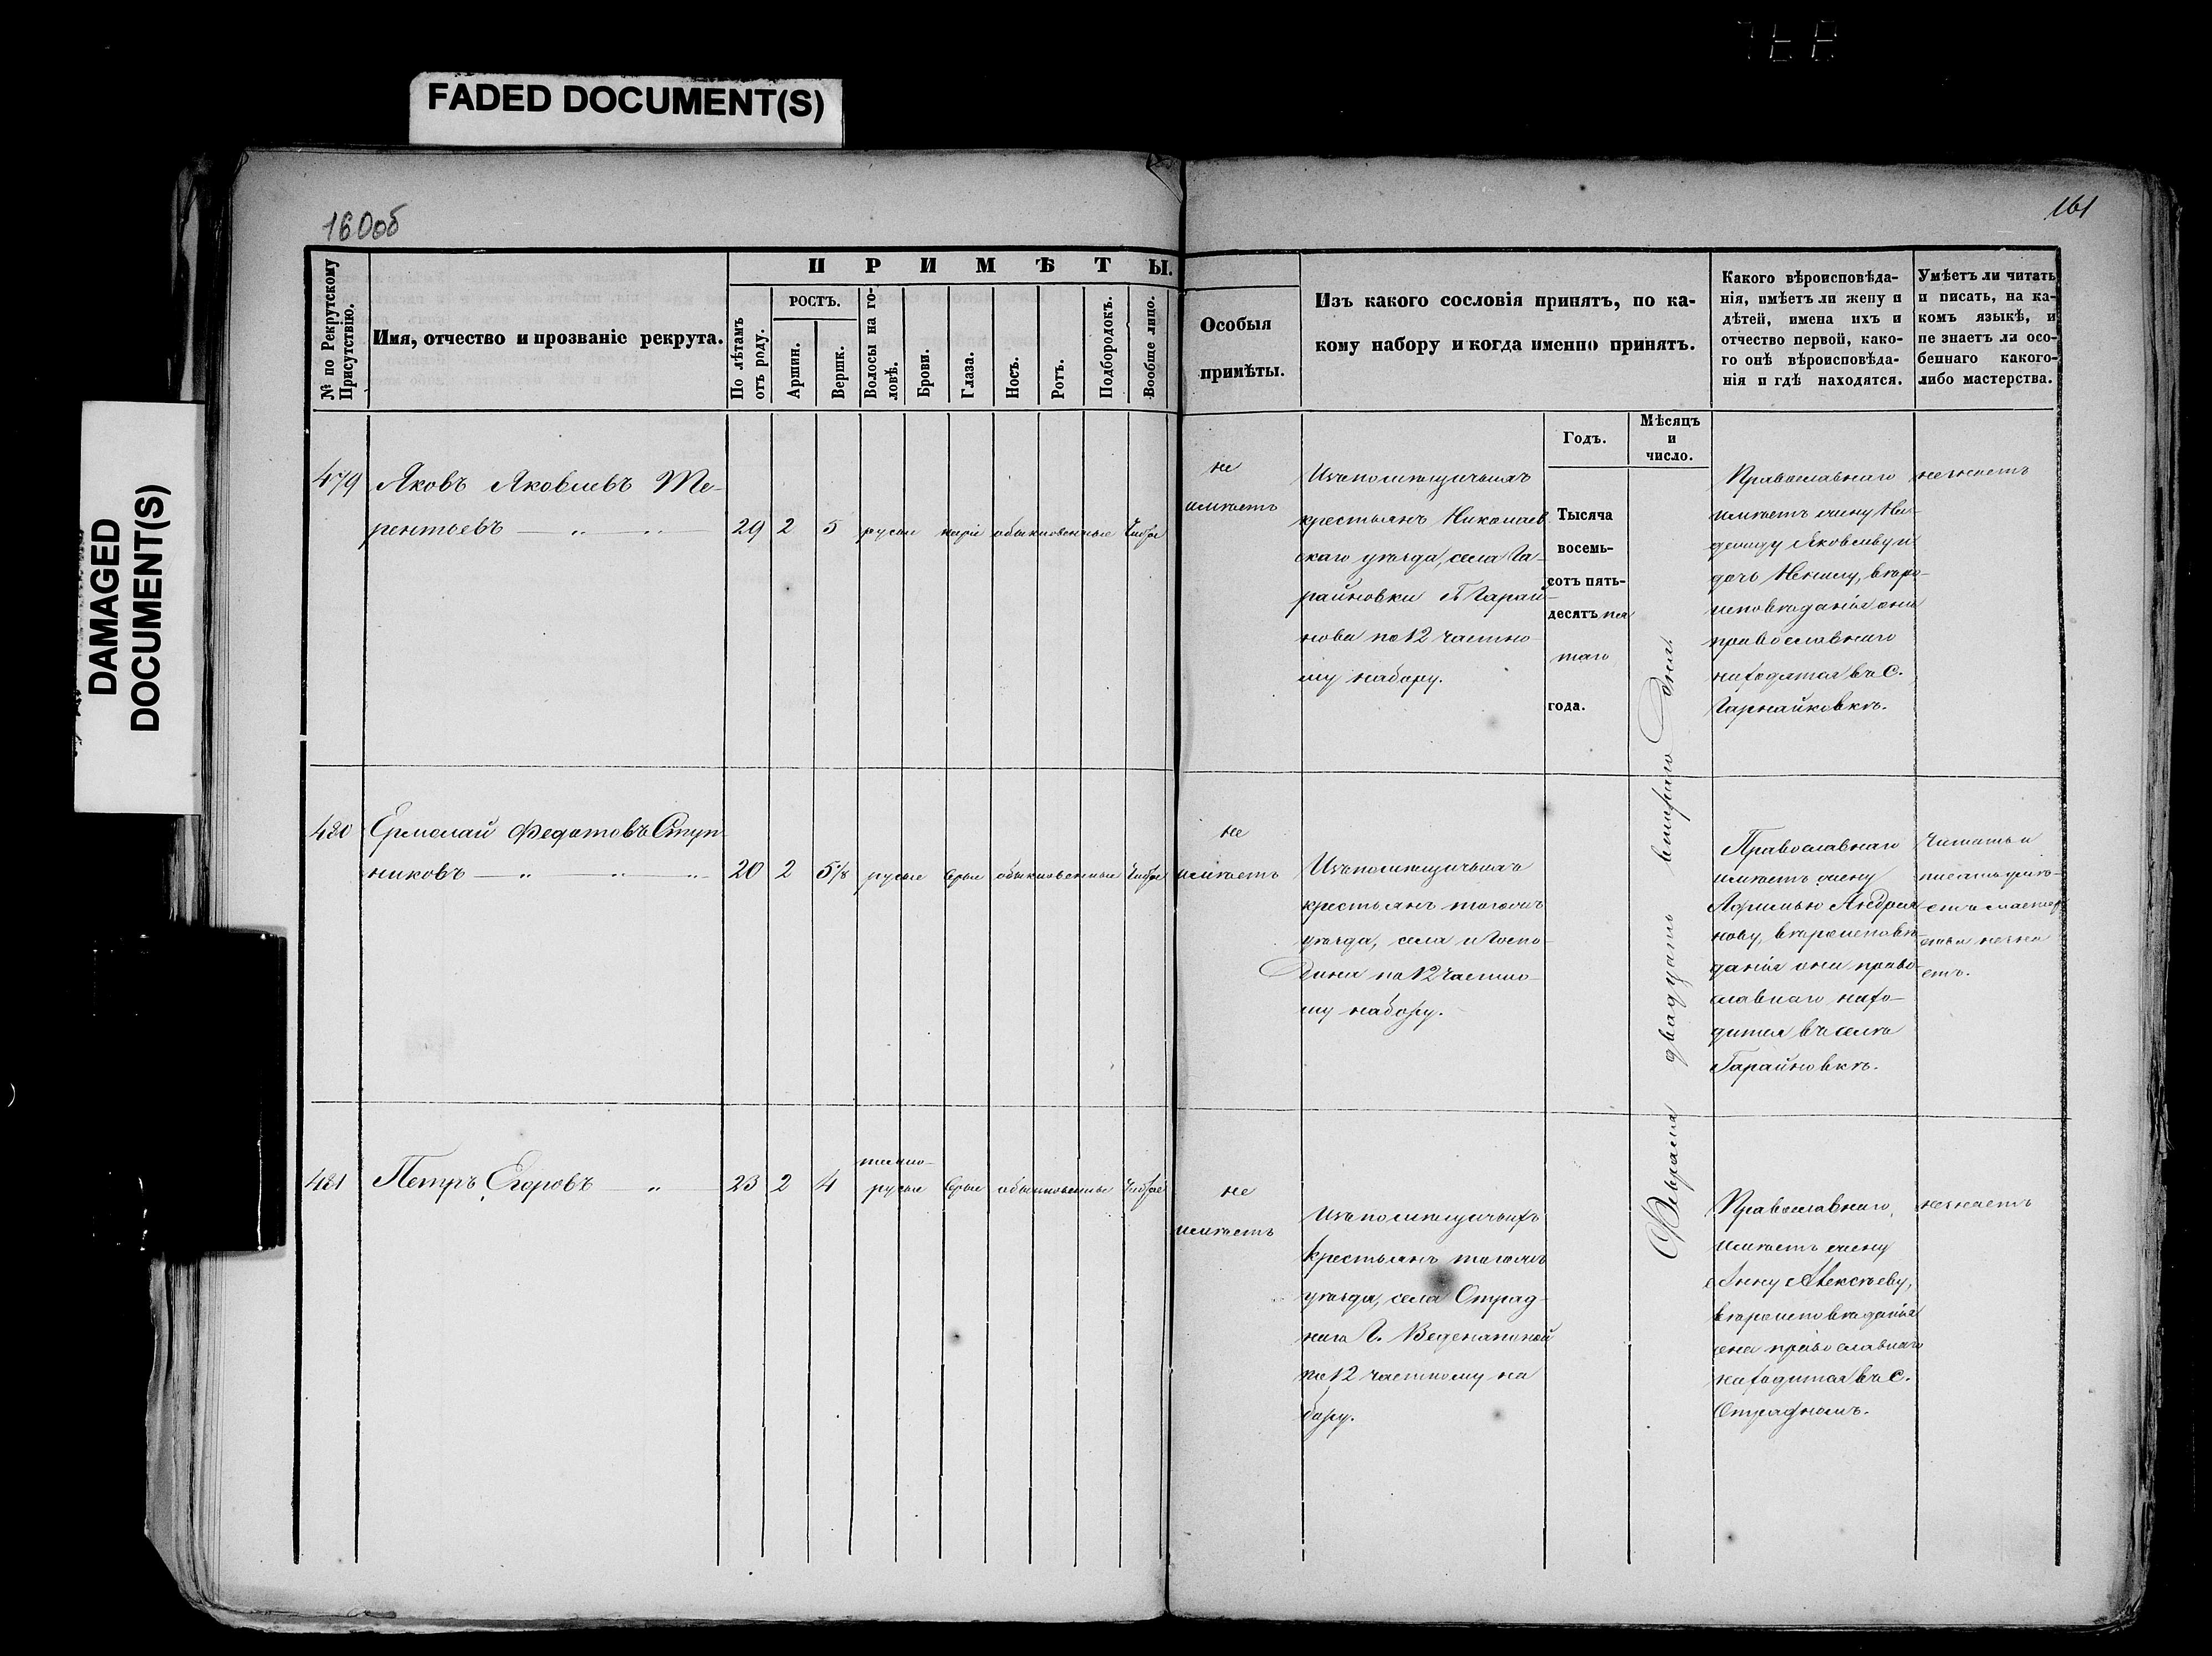 FADED DOCUMENT(S)
DAMAGED
DOCUMENT(S)
160об
161
№ по Рекрутскому
Присутствію.
Имя, отчество и прозваніе рекрута.
ПРИМѢТЫ.
По лѣтамъ
отъ роду.
РОСТЪ.
Аршин.
Вершк.
Волосы на го-
ловѣ.
Брови.
Глаза.
Носъ.
Ротъ.
Подбородокъ.
Вообще лицо.
Особыя
примѣты.
Изъ какого сословія принятъ, по ка-
кому набору и когда именно принятъ.
Годъ.
Мѣсяцъ
и
число.
Какого вѣроисповѣда-
нія, имѣетъ ли жену и
дѣтей, имена ихъ и
отчество первой, како-
го онѣ вѣроисповѣда-
нія и гдѣ находятся.
Умѣетъ ли читать
и писать, на ка-
комъ языкѣ, и
не знаетъ ли осо-
беннаго какого-
либо мастерства.
479
Яковъ Яковлевъ Те-
рентьевъ — „ — „
29 2 5 русые каріе обыкновенные Чистое
не
имѣетъ
Изъ помѣщичьихъ
крестьянъ Николаев
скаго уѣзда, села Га-
райновки Г. Гарай-
нова по 12 частно
му набору.
Тысяча
восемь-
сотъ пять-
десятъ пя
таго
года.
Февраля двадцать втораго Дня.
Православнаго
имѣетъ жену
Яковлеву и
дочь вѣро-
исповѣданія они
православнаго
находятся въ с.
незнаетъ
480
Ермолай Федотовъ Ступ
никовъ — „ „ „
20 2 5 1/8 русые серые обыкновенные Чистое
не
имѣетъ
Изъ помѣщичьихъ
крестьянъ тогожъ
уѣзда, села и Госпо-
дина по 12 частно
му набору.
Православнаго
имѣетъ жену
Афимью Андрея
нову, вѣроисповѣ-
данія она право-
славнаго нахо-
дится въ селѣ
Гарайновкѣ.
Читать и
писать умѣ-
етъ мастер
ства незна
етъ.
481
Петръ Егоровъ — „
23 2 4 темно-
русые серые обыкновенные Чистое
не
имѣетъ
Изъ помѣщичьихъ
крестьянъ тогожъ
уѣзда, села Отрад-
наго Г. Веденяпиной
по 12 частному на
бору.
Православнаго,
имѣетъ жену
Анну Алексѣеву,
вѣроисповѣданія
она православнаго
находится въ с.
Отрадномъ.
незнаетъ